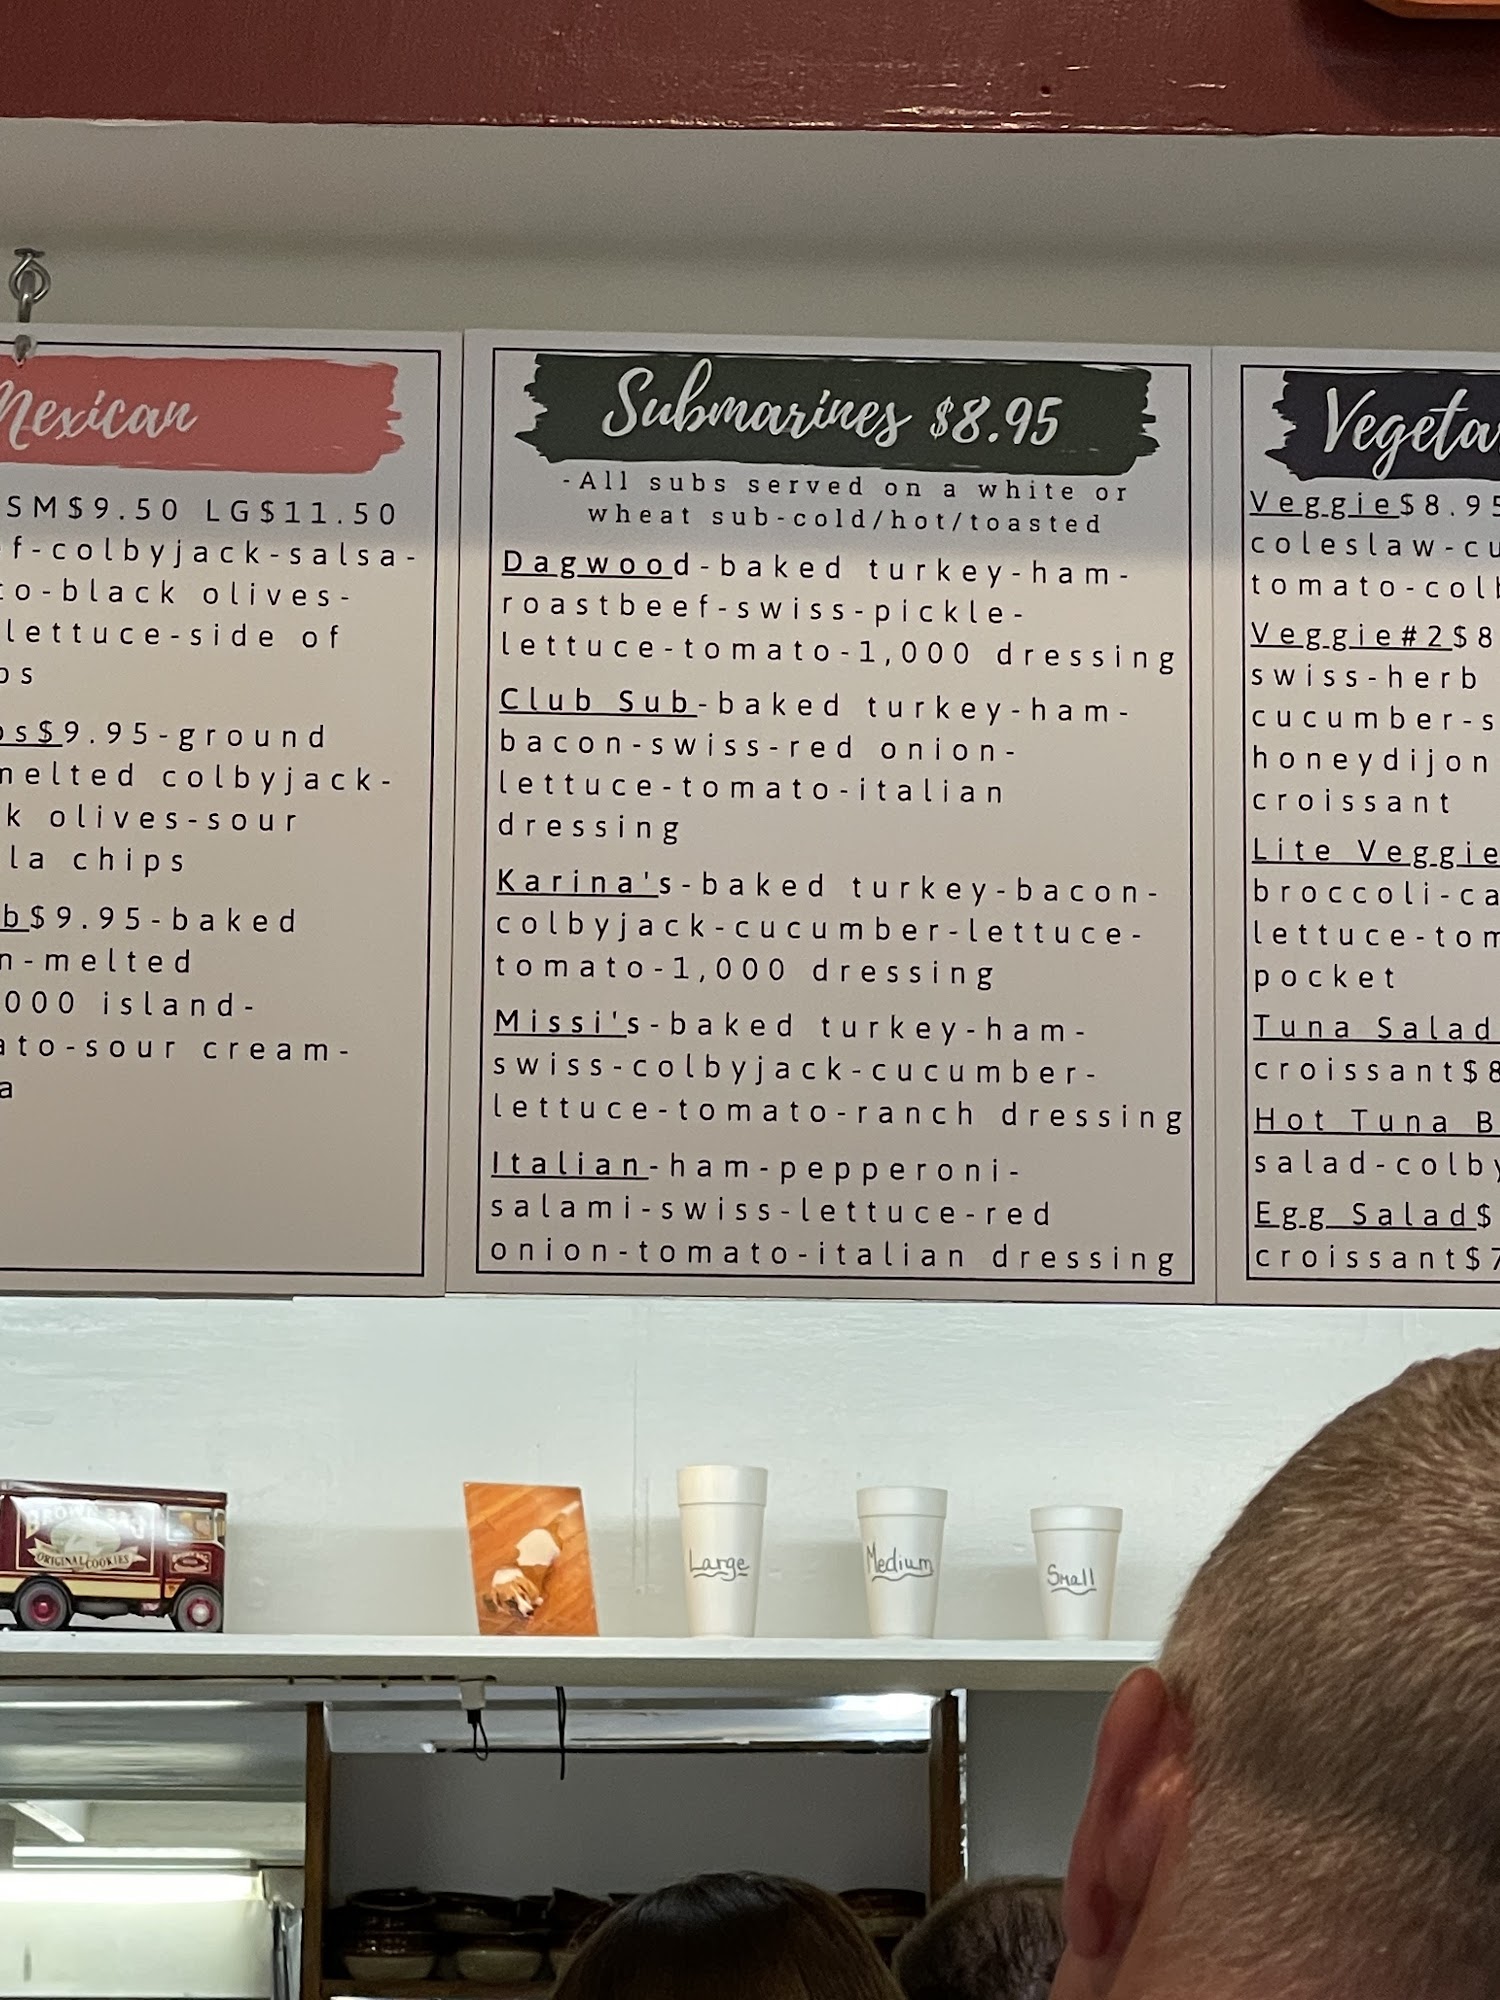 Mexican
SM$9.50 LG$11.50
f-colbyjack-salsa-
to-black olives-
lettuce-side of
$9.95-ground
melted colbyjack-
k olives-sour
la chips
b$9.95-baked
n-melted
000 island-
ato-sour cream-
a
Submarines $8.95
-All subs served on a white or
wheat sub-cold/hot/toasted
Dagwood-baked turkey-ham-
roastbeef-swiss-pickle-
lettuce-tomato-1,000 dressing
Club Sub-baked turkey-ham-
bacon-swiss-red onion-
lettuce-tomato-italian
dressing
Karina's-baked turkey-bacon-
colbyjack-cucumber-lettuce-
tomato-1,000 dressing
Missi's-baked turkey-ham-
swiss-colbyjack-cucumber-
lettuce-tomato-ranch dressing
Italian-ham-pepperoni-
salami-swiss-lettuce-red
onion-tomato-italian dressing
Vegeta
Veggie$8.95
coleslaw-cu
tomato-colb
Veggie#2$8
swiss-herb
cucumber-s
honeydijon
croissant
Lite Veggie
broccoli-ca
lettuce-tom
pocket
Tuna Salad
croissant$8
Hot Tuna B
salad-colby
Egg Salad$
croissant$7
BROWN BAG
ORIGINAL COOKIES
Large
Medium
Small